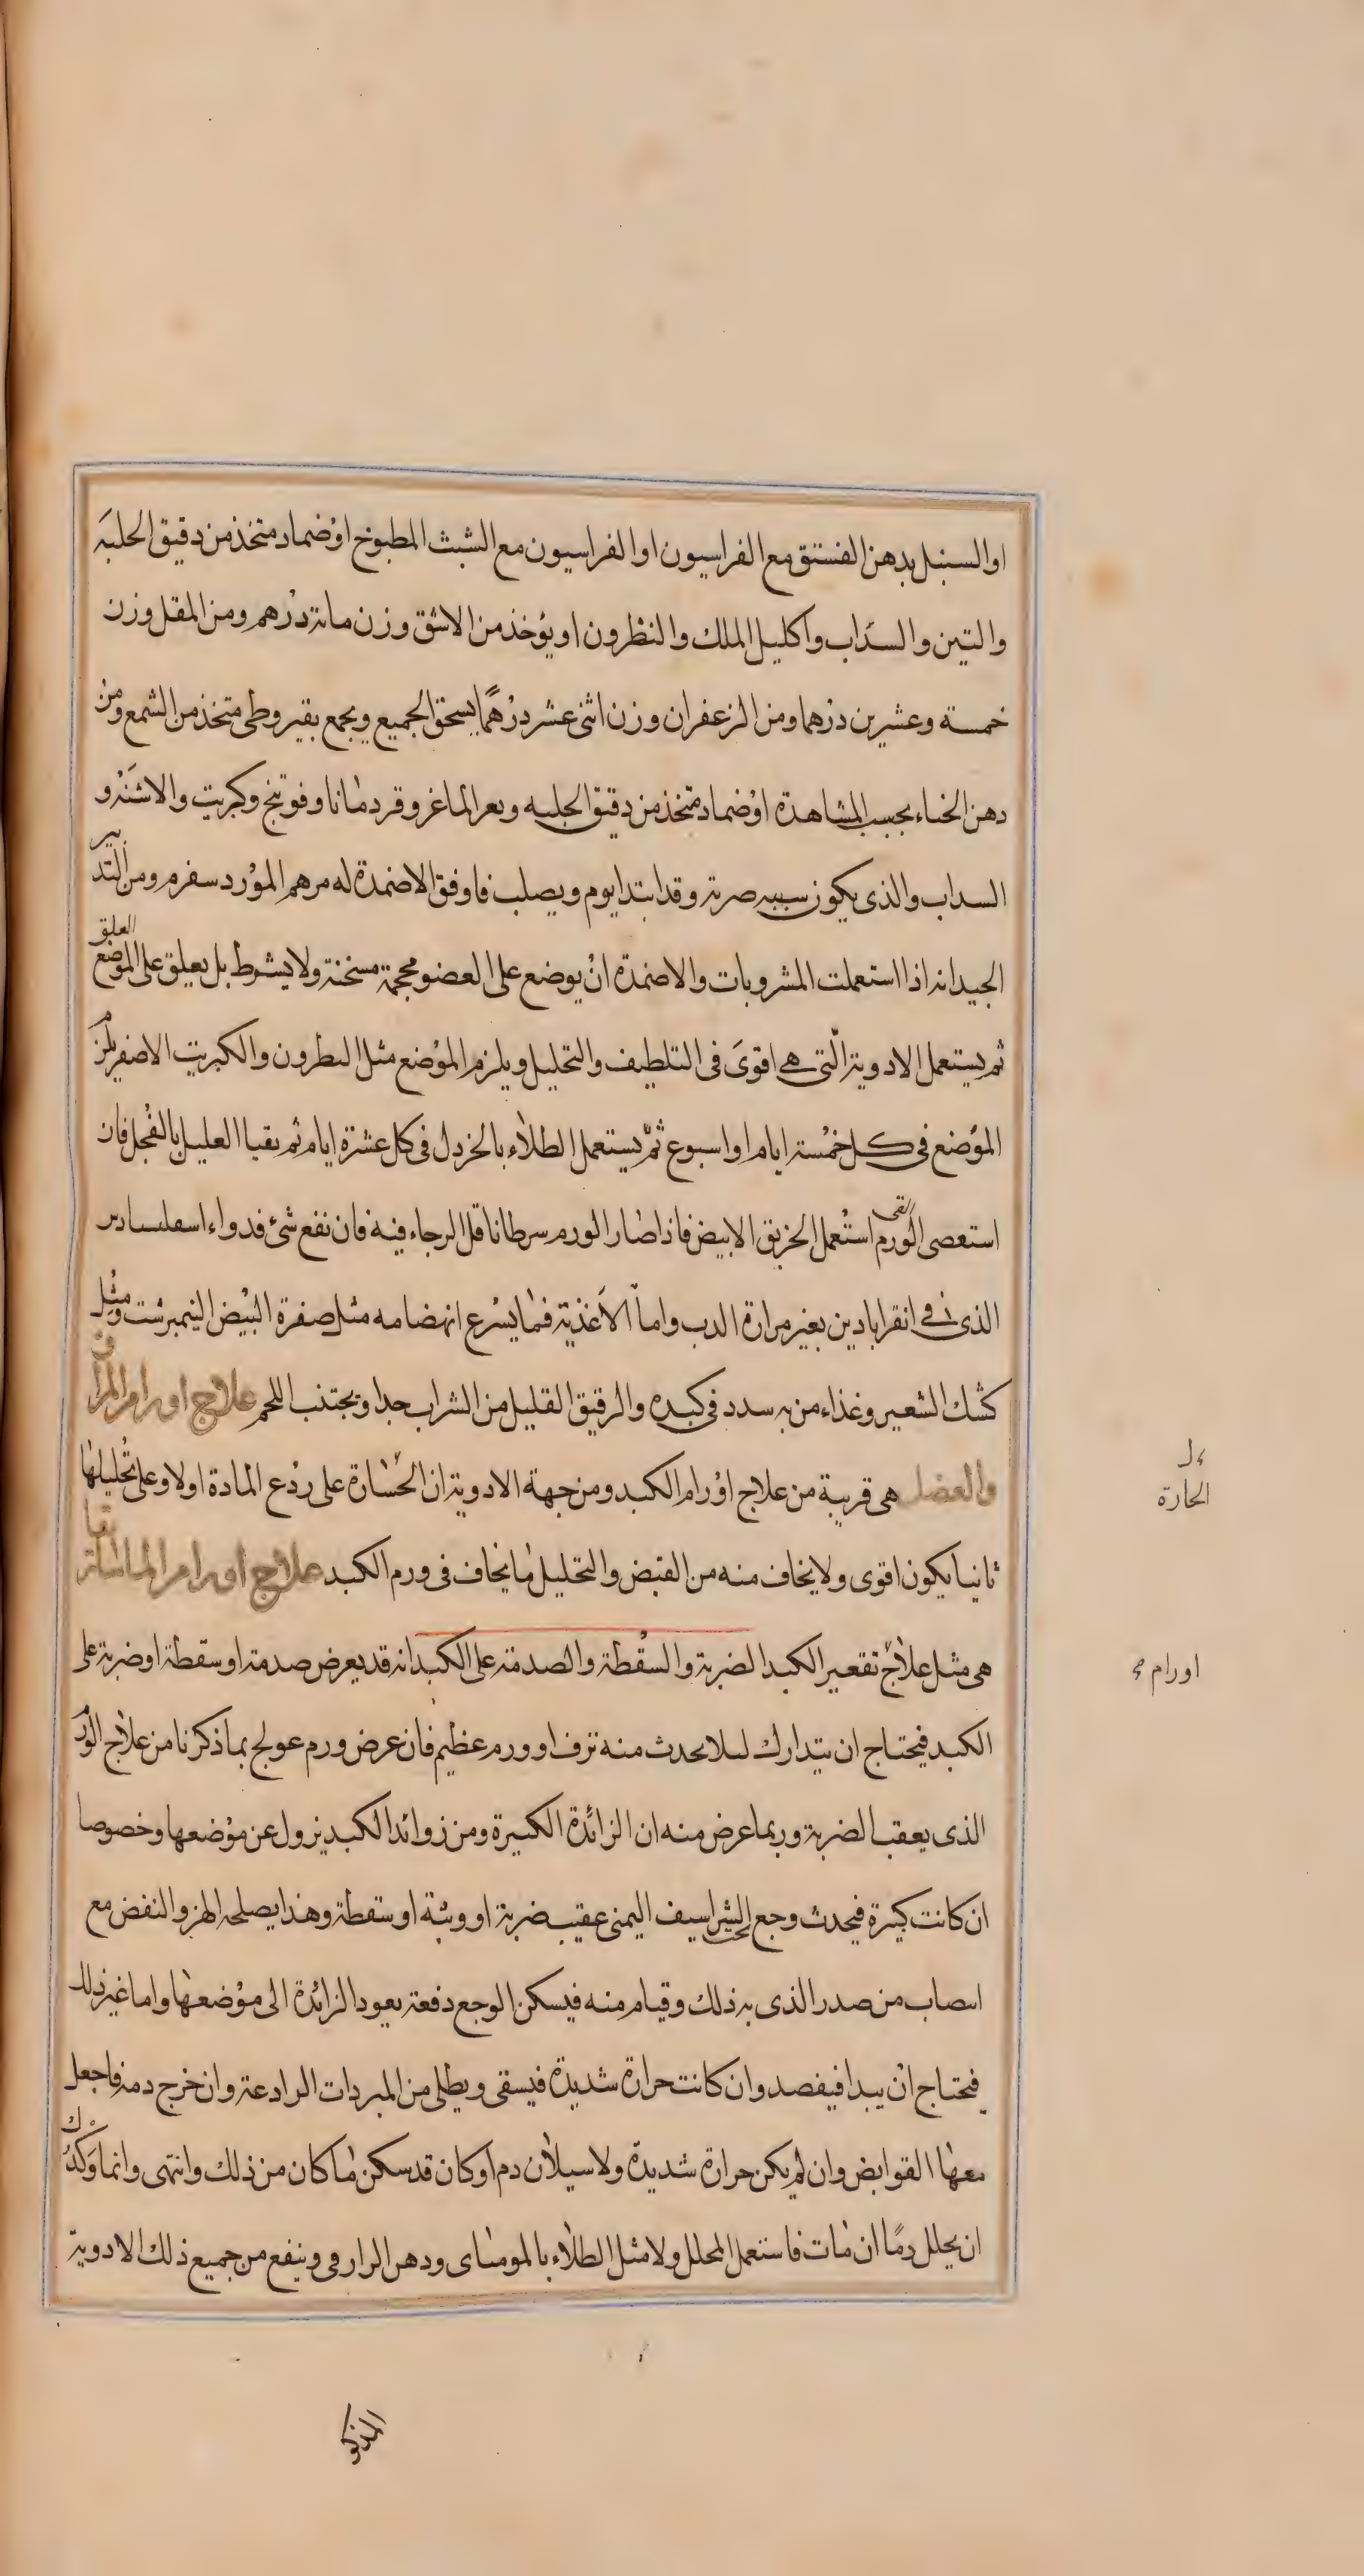 او السنبل بدهن الفستق مع الفراسيون او الفراسيون مع الشبث المطبوخ او ضماد متخذ من دقيق الحلبه
والتين والسداب واكليل الملك والنطرون او يؤخذ من الاشق وزن مائة درهم ومن المقل وزن
خمسة وعشرين درهما ومن الزعفران وزن اثنى عشر درهمًا يسحق الجميع ويجمع بقيروطى متخذ من الشمع ومن
دهن الحناء بحسب المشاهدة او ضماد متخذ من دقيق الحلبه وبعر الماعز وقردمانا وفوتنج وكبريت والاشنه و
السداب والذى يكون سببه ضربة وقد ابتدا يوم ويصلب فاوفق الاضمدة له مرهم المورد سفرم ومن التدبير
الجيد انه اذا استعملت المشروبات والاضمدة ان يوضع على العضو محجمة مسخنة ولا يشرط بل يعلق على الموضع العلق
ثم يستعمل الادوية الّتى هى اقوى فى التلطيف والتحليل ويلزم الموضع مثل النطرون والكبريت الاصفر يلزم
الموضع فى كل خمسة ايام او اسبوع ثمّ يستعمل الطلاء بالخردل فى كل عشرة ايام ثم يقيا العليل بالفجل فان
استعصى الورم استعمل القى الخربق الابيض فاذا صار الورم سرطانا قل الرجاء فيه فان نفع شئ فدواء اسقلبيادس
الذى فى انقراباذين بغير مرارة الدب واما الاغذية فما يسرع انهضامه مثل صفرة البيض النيمبرشت ومثل
كشك الشعير وغذاء من به سدد فى كبده والرقيق القليل من الشراب جدا ويجتنب اللحم علاج اورام المراق
والعضل هى قريبة من علاج اورام الكبد ومن جهة الادوية ان الجسارة على ردع المادة اولا وعلى تحليلها
ثانيا يكون اقوى ولا يخاف منه من القبض والتحليل ما يخاف فى ورم الكبد علاج اورام الماساريقا
هى مثل علاج تقعير الكبد الضربة والسقطة والصدمة على الكبد انه قد يعرض صدمة او سقطة او ضربة على
الكبد فيحتاج ان يتدارك لئلا يحدث منه نزف او ورم عظيم فان عرض ورم عولج بما ذكرنا من علاج الورم
الذى يعقب الضربة وربما عرض منه ان الزائدة الكبيرة ومن زوائد الكبد يزول عن موضعها وخصوصا
ان كانت كبيرة فيحدث وجع تحت الشراسيف اليمنى عقيب ضربة او وثبة او سقطة وهذا يصلحه الهز والنفض مع
انصاب من صدر الذى به ذلك وقيام منه فيسكن الوجع دفعة بعود الزائدة الى موضعها واما غير ذلك
فيحتاج ان يبدا فيفصد وان كانت حرارة شديدة فيسقى ويطلى من المبردات الرادعة وان خرج دمه فاجعل
معها القوابض وان لم يكن حرارة شديدة ولا سيلان دم او كان قد سكن ما كان من ذلك وانتهى وانما وكدك
ان يحلل دمًا ان مات فاستعمل المحلل ولا مثل الطلاء بالموميائى ودهن الرازقى وينفع من جميع ذلك الادوية
الحارة
اورام
المذكو